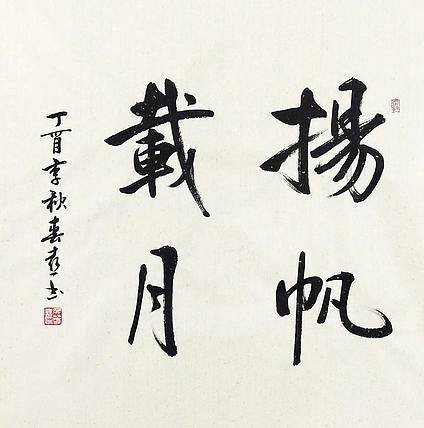 揚帆
載月
丁酉季秋春书